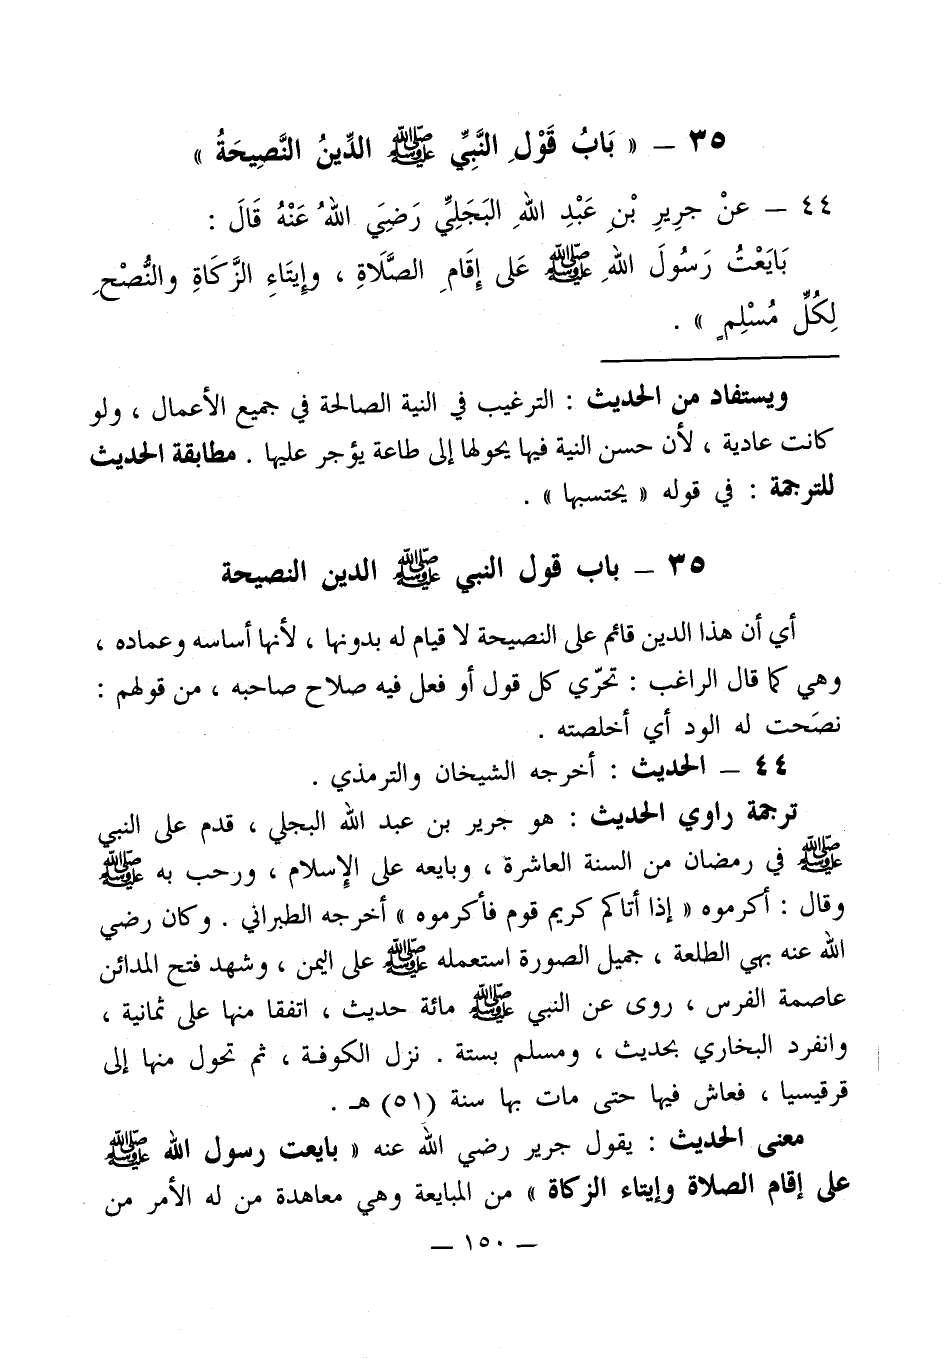 ٣٥ – « بَابُ قَوْلِ النَّبِيِّ ﷺ الدِّينُ النَّصِيحَةُ »
٤٤ – عنْ جريرِ بْنِ عَبْدِ اللهِ البَجَلِيِّ رَضِيَ اللهُ عَنْهُ قَالَ :
بَايَعْتُ رَسُولَ اللهِ ﷺ عَلى إِقَامِ الصَّلَاةِ ، وإِيتَاءِ الزَّكَاةِ والنُّصْحِ
لِكُلِّ مُسْلِمٍ » .
ويستفاد من الحديث : الترغيب في النية الصالحة في جميع الأعمال ، ولو
كانت عادية ، لأن حسن النية فيها يحولها إلى طاعة يؤجر عليها . مطابقة الحديث
للترجمة : في قوله « يحتسبها » .
٣٥ – باب قول النبي ﷺ الدين النصيحة
أي أن هذا الدين قائم على النصيحة لا قيام له بدونها ، لأنها أساسه وعماده ،
وهي كما قال الراغب : تحرّي كل قول أو فعل فيه صلاح صاحبه ، من قولهم :
نصَحت له الود أي أخلصته .
٤٤ – الحديث : أخرجه الشيخان والترمذي .
ترجمة راوي الحديث : هو جرير بن عبد الله البجلي ، قدم على النبي
ﷺ في رمضان من السنة العاشرة ، وبايعه على الإسلام ، ورحب به ﷺ
وقال : أكرموه « إذا أتاكم كريم قوم فأكرموه » أخرجه الطبراني . وكان رضي
الله عنه بهي الطلعة ، جميل الصورة استعمله ﷺ على اليمن ، وشهد فتح المدائن
عاصمة الفرس ، روى عن النبي ﷺ مائة حديث ، اتفقا منها على ثمانية ،
وانفرد البخاري بحديث ، ومسلم بستة . نزل الكوفة ، ثم تحول منها إلى
قرقيسيا ، فعاش فيها حتى مات بها سنة (٥١) هـ .
معنى الحديث : يقول جرير رضي الله عنه « بايعت رسول الله ﷺ
على إقام الصلاة وإيتاء الزكاة » من المبايعة وهي معاهدة من له الأمر من
– ١٥٠ –